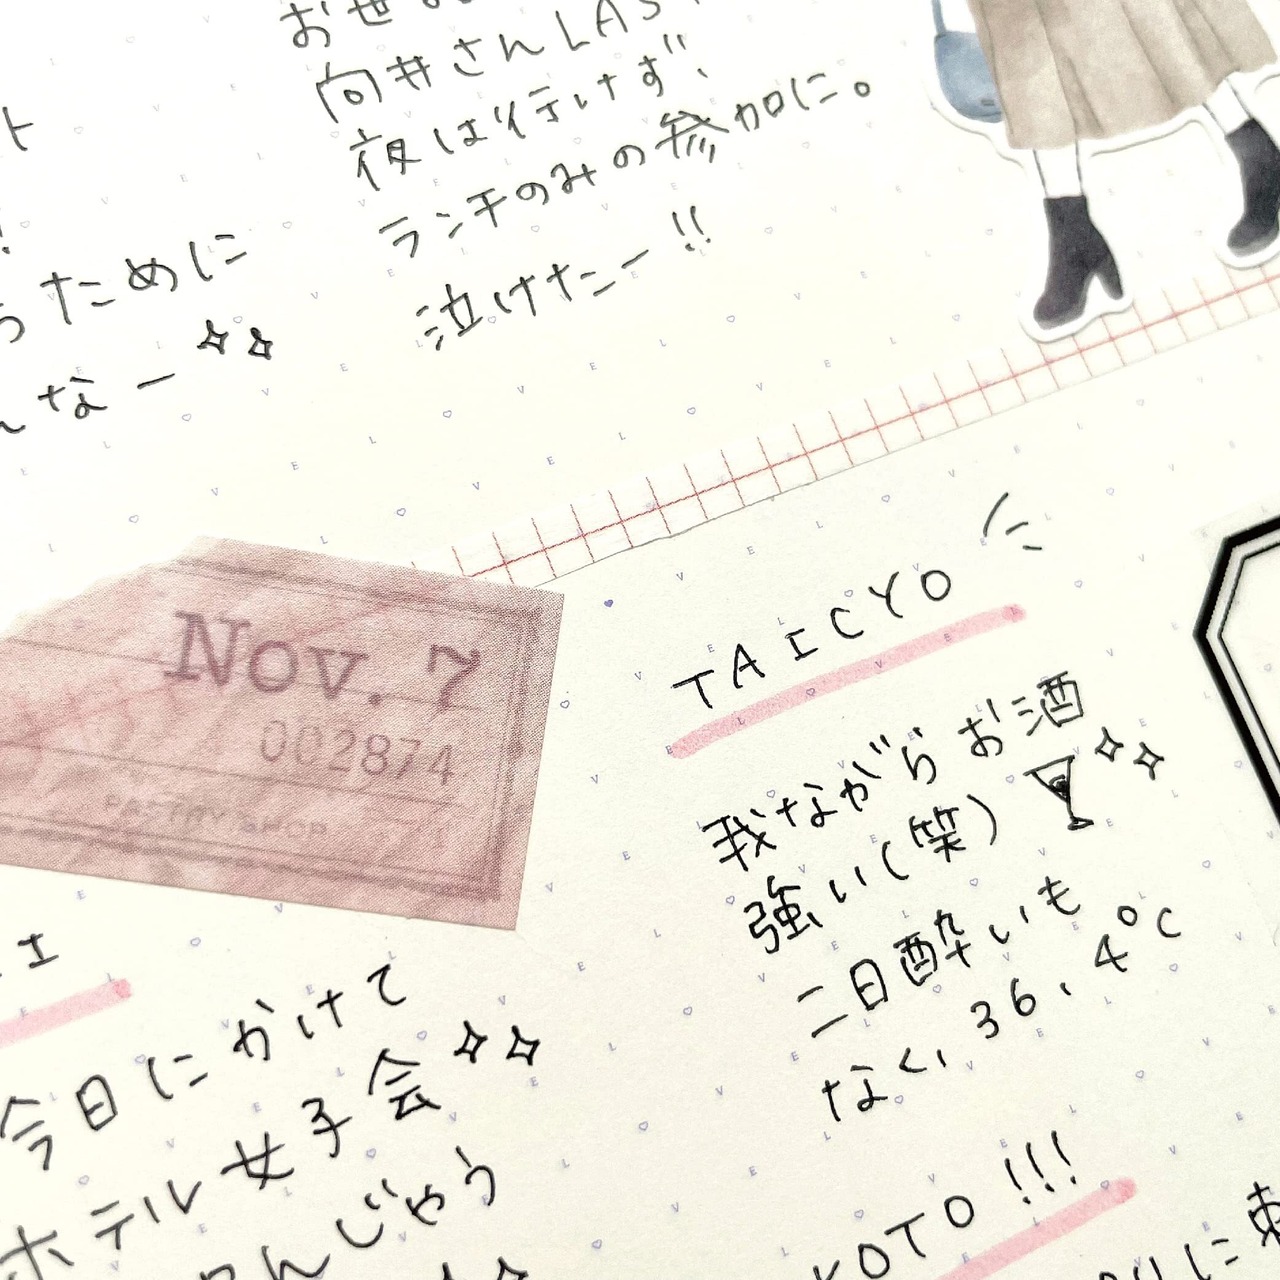 向井さんLAS
夜は行けず、
ランチのみの参加に。
泣けたー!!
ト
ために
なー
Nov. 7
002874
PASTRY SHOP
今日にかけて
ホテル女子会
んじゃう
TAICYO
我ながらお酒
強い(笑)
二日酔いも
なく、36.4°C
KOTO!!!